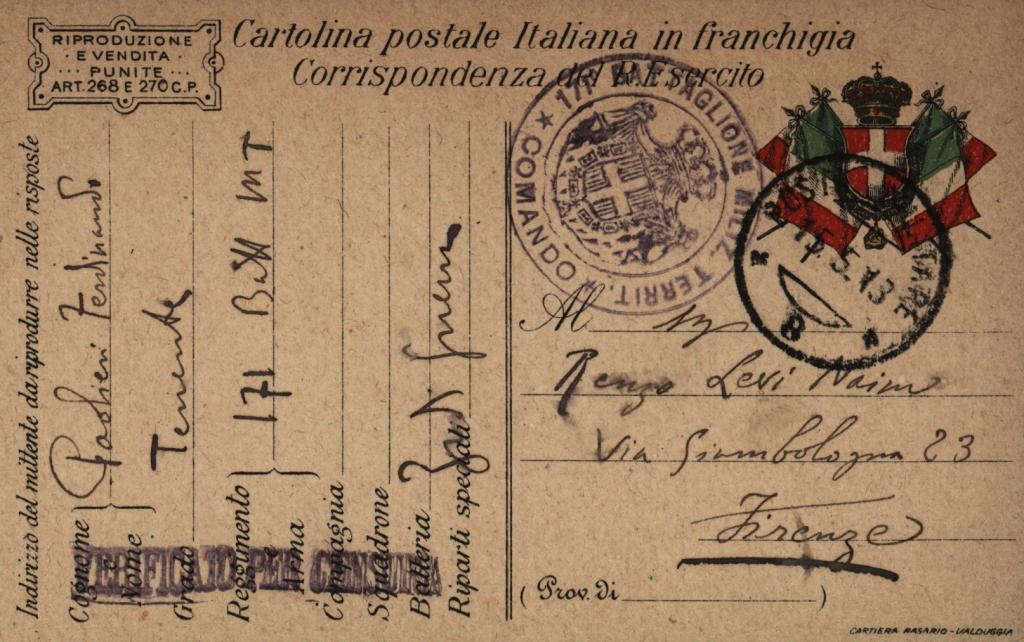 RIPRODUZIONE
E VENDITA
PUNITE
ART. 268 E 270 C.P.
Cartolina postale Italiana in franchigia
Corrispondenza del R. Esercito
★ COMANDO ★ 171° BATTAGLIONE MILIZ. TERRIT.
POSTA MILITARE
8
Indirizzo del mittente da riprodurre nelle risposte
Cognome e Nome Paolieri Ferdinando
Grado Tenente
Reggimento e Arma 171 Batt M T
Compagnia
Squadrone
Batteria
Riparti speciali Zona di guerra
VERIFICATO PER CENSURA
Al Sig
Renzo Levi Naim
Via Giambologna 23
Firenze
(Prov. di )
CARTIERA RASARIO - VALDUGGIA